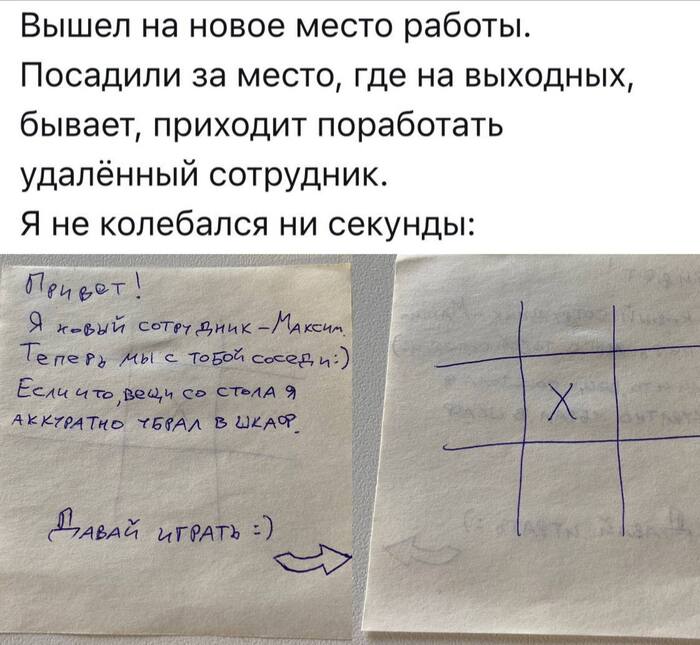 Вышел на новое место работы.
Посадили за место, где на выходных,
бывает, приходит поработать
удалённый сотрудник.
Я не колебался ни секунды:
Привет!
Я новый сотрудник – Максим.
Теперь мы с тобой соседи:)
Если что, вещи со стола я
аккуратно убрал в шкаф.
Давай играть :)
X